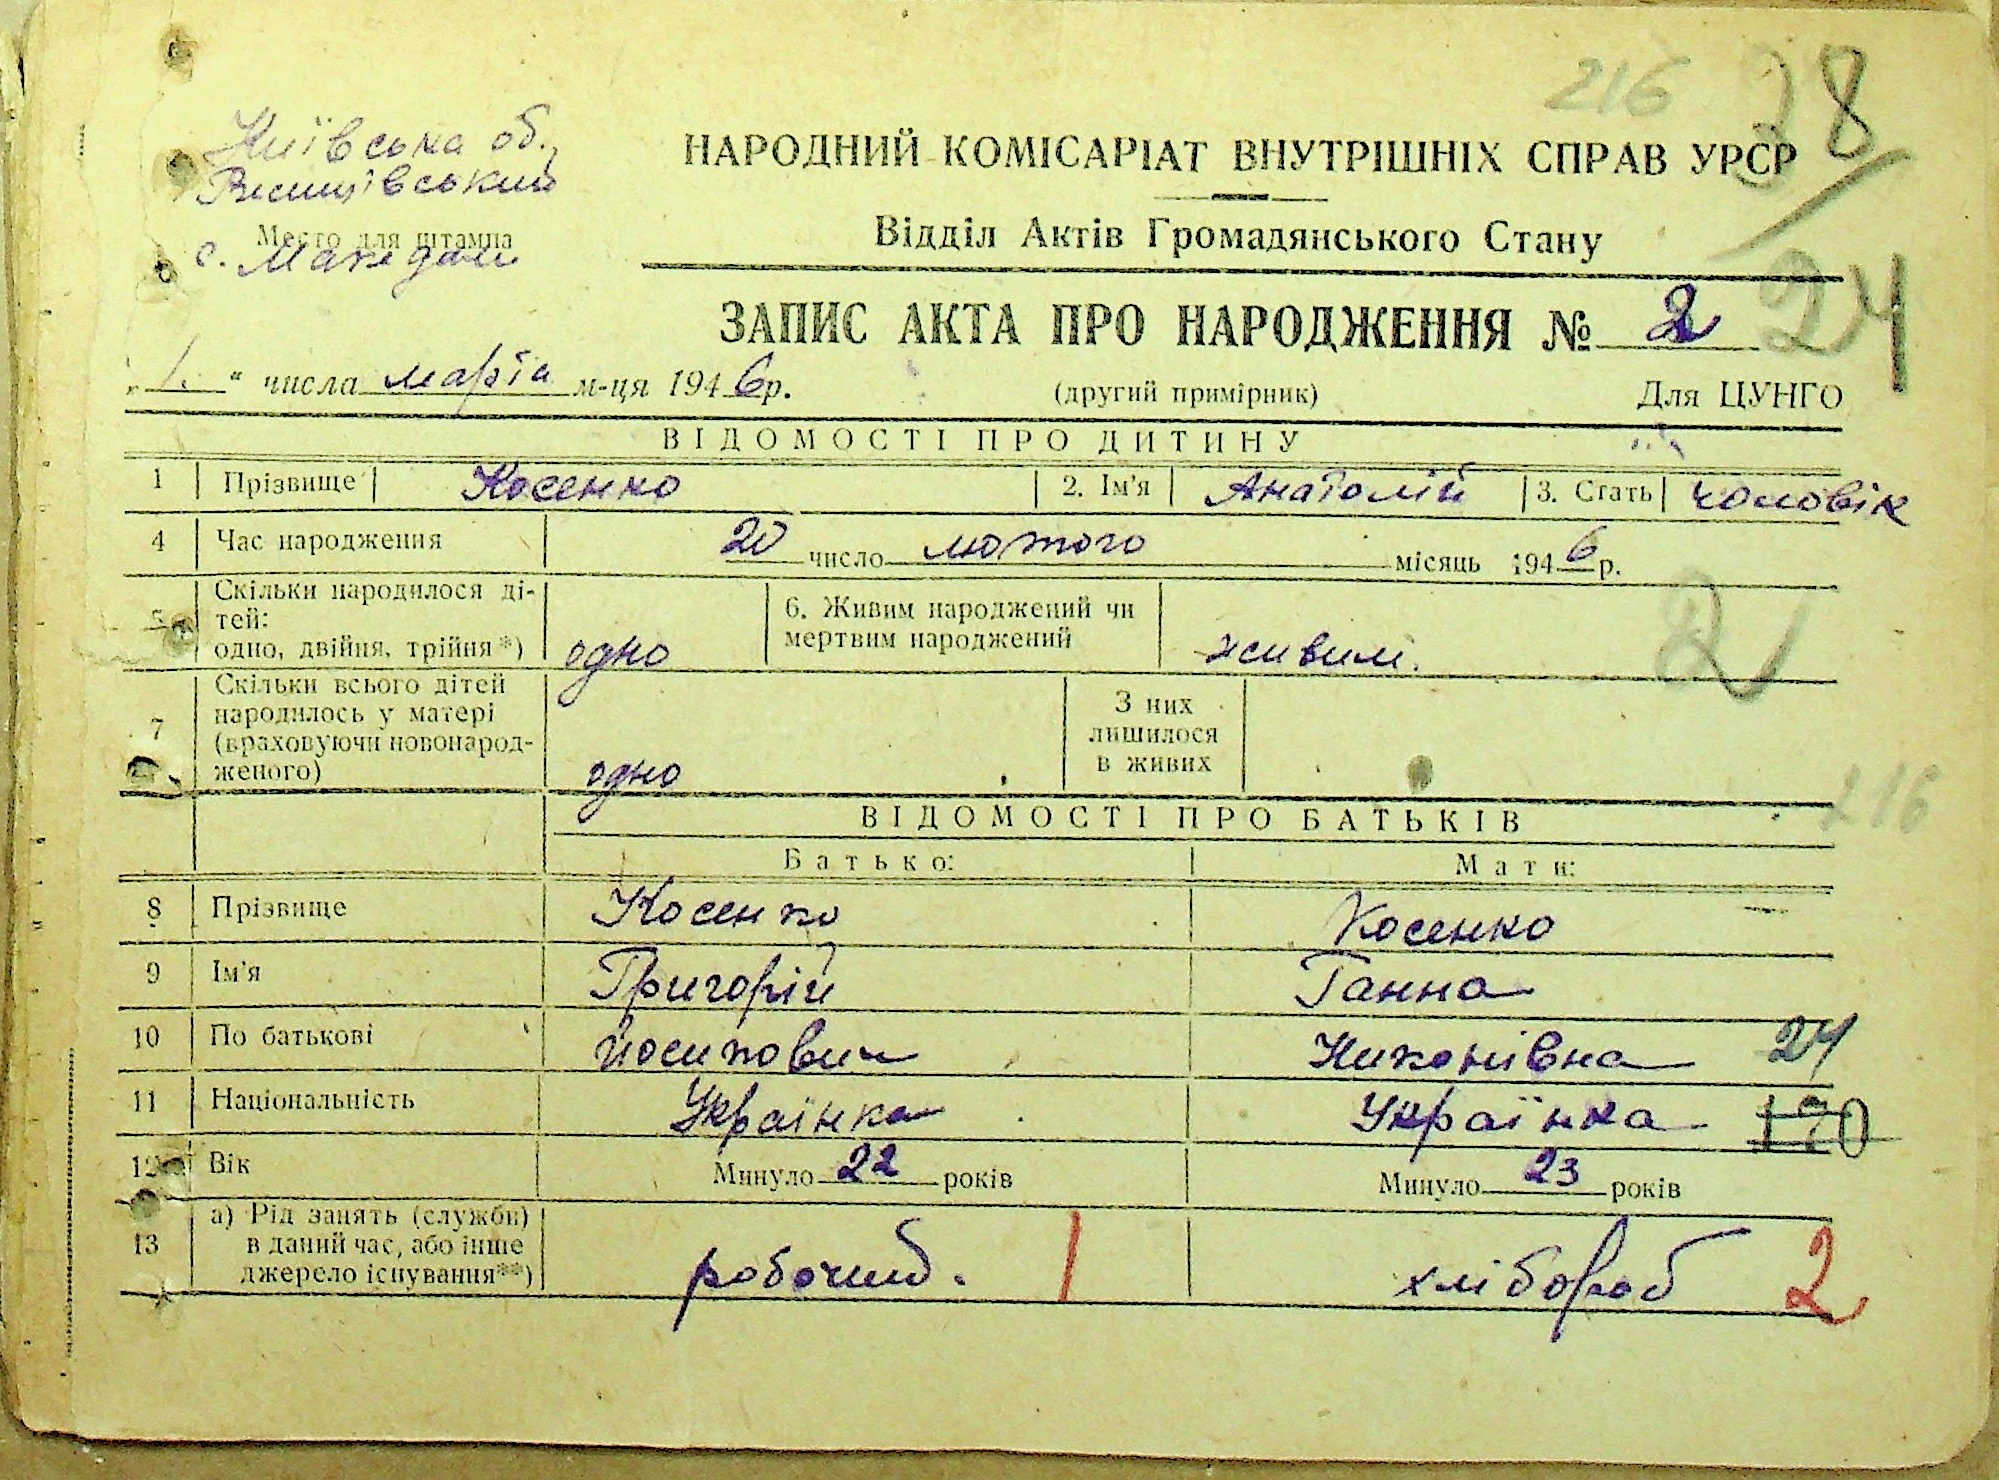 216 38
Київська об.,
НАРОДНИЙ КОМІСАРІАТ ВНУТРІШНІХ СПРАВ УРСР
Відділ Актів Громадянського Стану
Место для штампа
с. Македони
24
ЗАПИС АКТА ПРО НАРОДЖЕННЯ № 2
„ 1. “ числа марта м-ця 1946р. (другий примірник) Для ЦУНГО
ВІДОМОСТІ ПРО ДИТИНУ
1 Прізвище Косенко 2. Ім'я Анатолій 3. Стать чоловік
4 Час народження 20 число лютого місяць 1946 р.
5 Скільки народилося ді-
тей:
одно, двійня, трійня*) одно 6. Живим народжений чи
мертвим народжений живим. 2
7 Скільки всього дітей
народилось у матері
(враховуючи новонарод-
женого) одно З них
лишилося
в живих
216
ВІДОМОСТІ ПРО БАТЬКІВ
Батько: Мати:
8 Прізвище Косенко Косенко
9 Ім'я Григорій Ганна
10 По батькові Йосипович Никонівна 24
11 Національність Українка Українка 170
12 Вік Минуло 22 років Минуло 23 років
13 а) Рід занять (служби)
в даний час, або інше
джерело існування**) робочий. 1 хлібороб 2